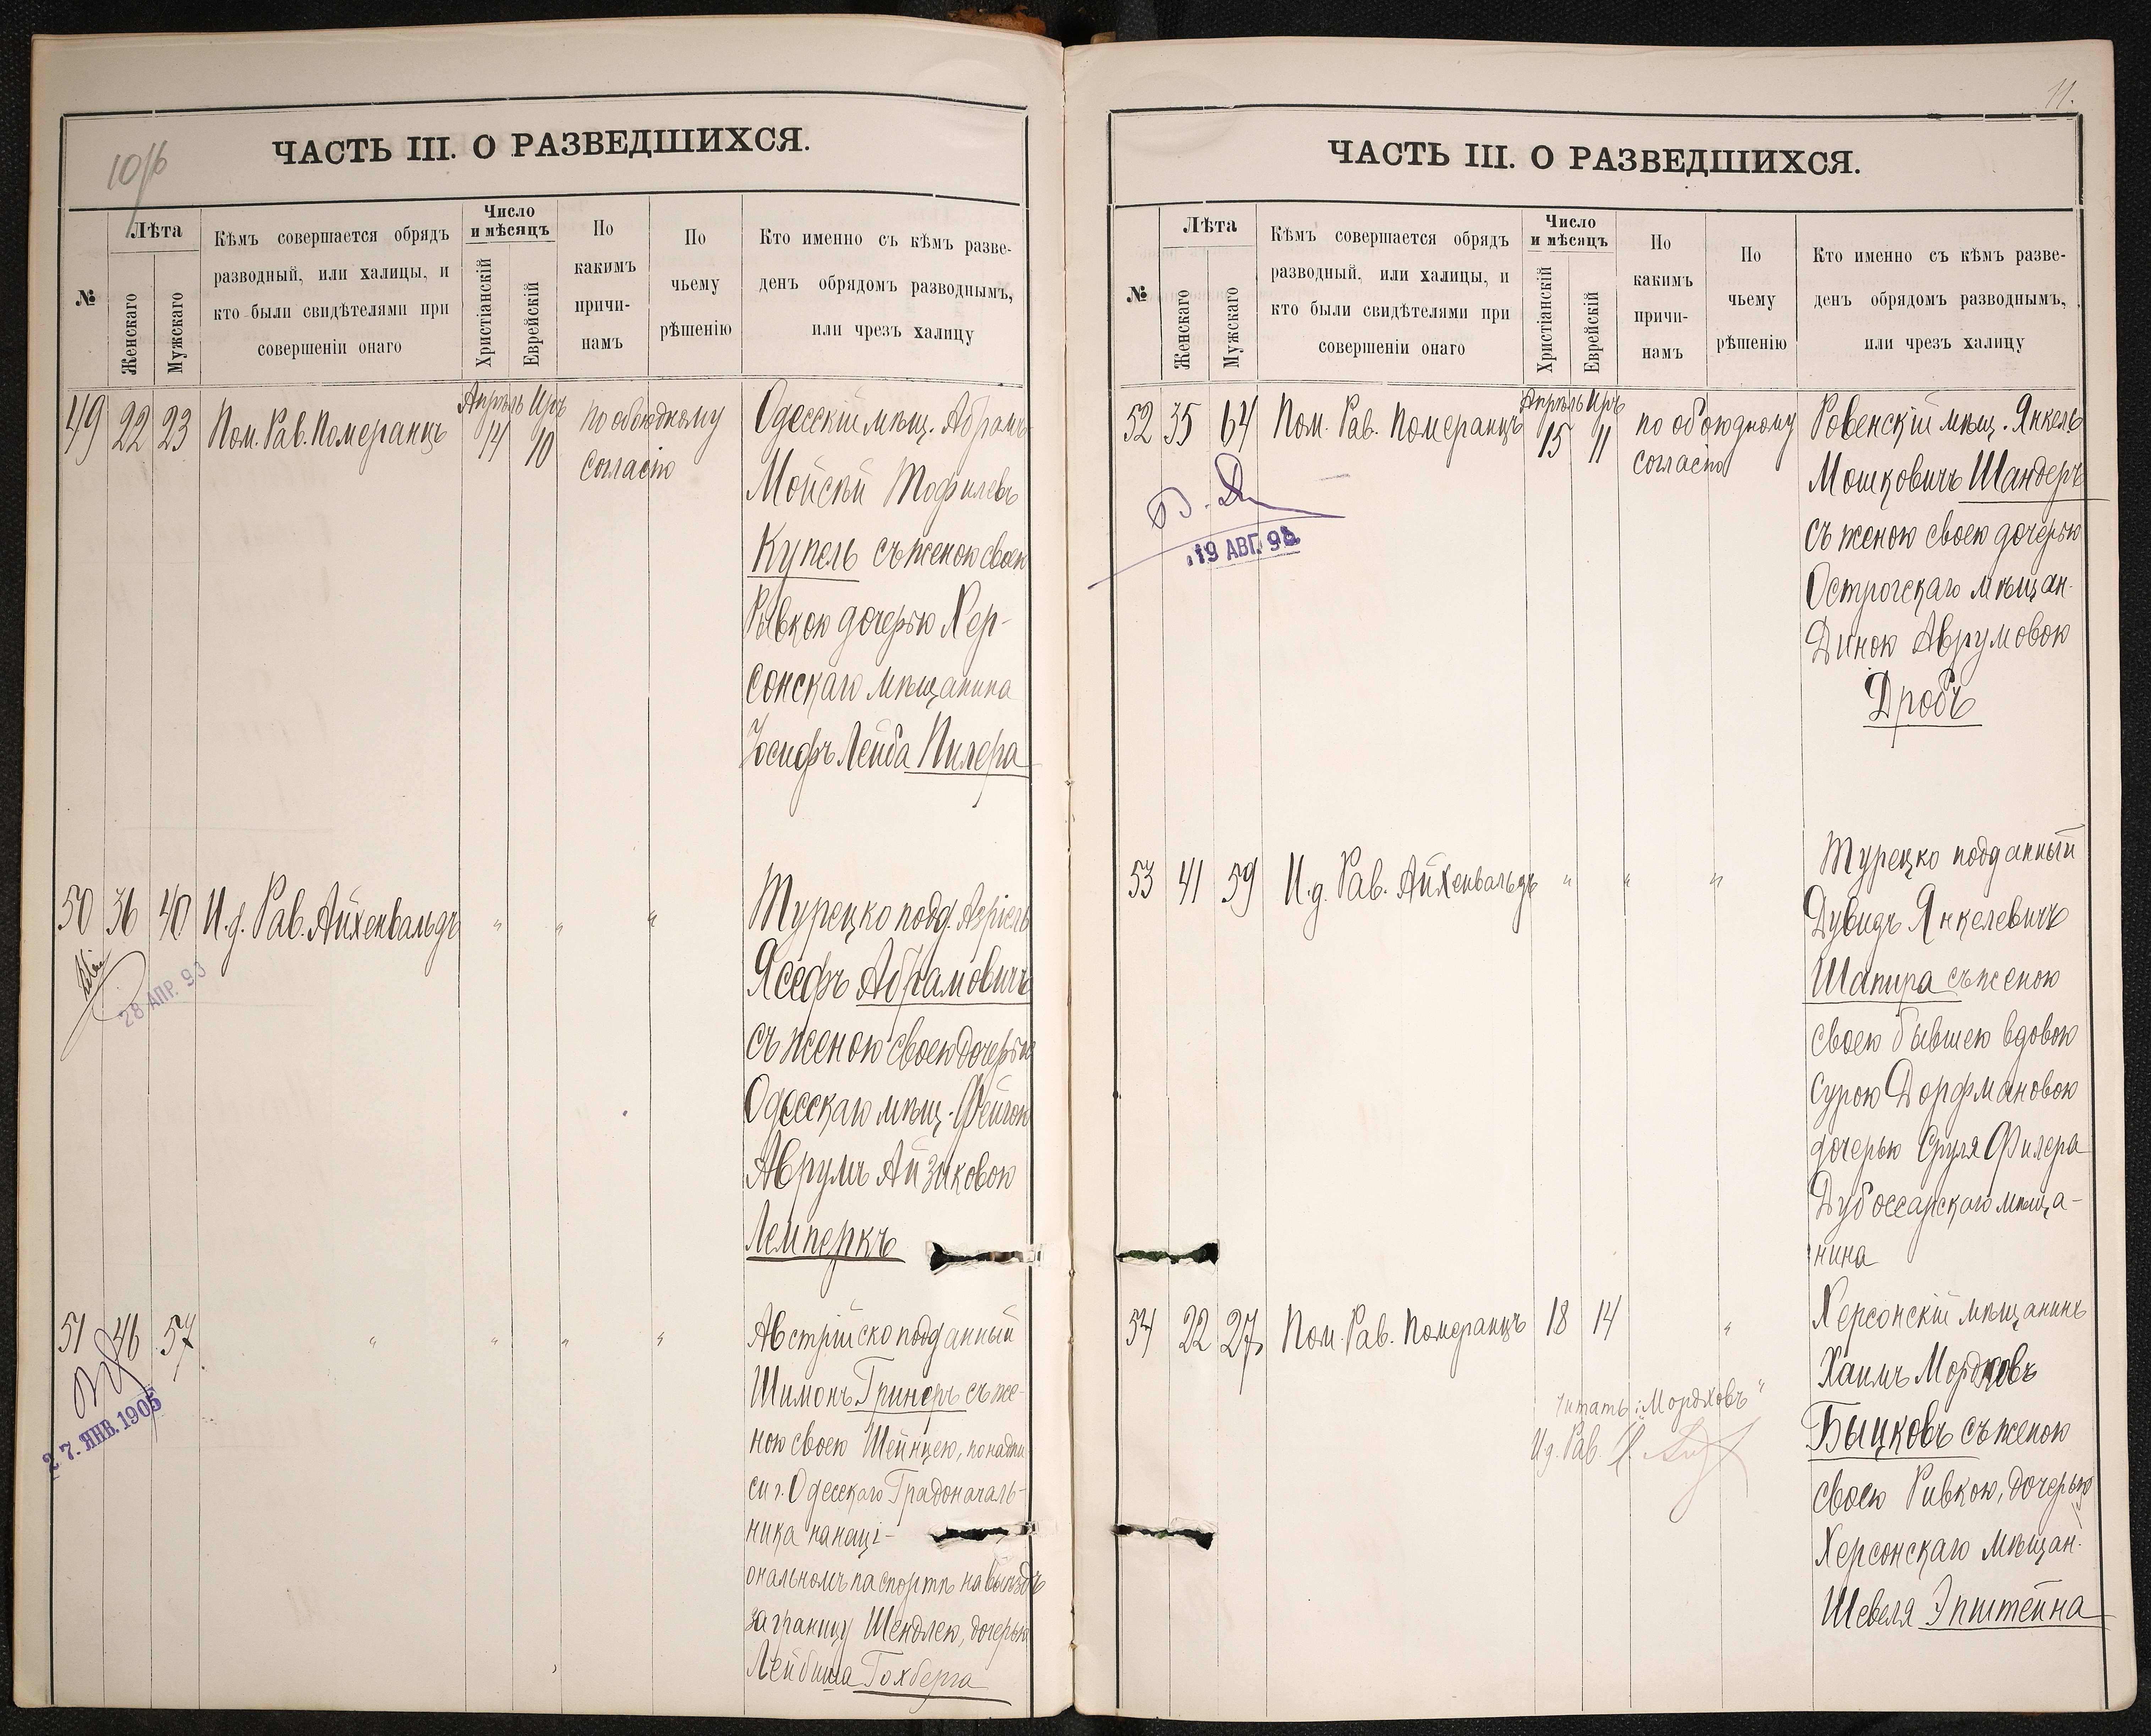 10/б
ЧАСТЬ III. О РАЗВЕДШИХСЯ.
№
Лѣта
Женскаго
Мужскаго
Кѣмъ совершается обрядъ
разводный, или халицы, и
кто были свидѣтелями при
совершеніи онаго
Число
и мѣсяцъ
Христіанскій
Еврейскій
По
какимъ
причи-
намъ
По
чьему
рѣшенію
Кто именно съ кѣмъ разве-
денъ обрядомъ разводнымъ,
или чрезъ халицу
49 22 23 Пом. Рав. Померанцъ
Апрѣль Иръ
14 10
По обоюдному
согласію
Одесскій мѣщ. Абрамъ
Мойсѣй Тофилевъ
Купель съ женою своею
Рывкою дочерью Хер-
сонскаго мѣщанина
Іосифъ Лейба Пилера
50 36 40 И.д. Рав. Айхенвальдъ " " "
28 АПР. 93
Турецко подд. Азріель
Ясефъ Абрамовичъ
съ женою своею дочерью
Одесскаго мѣщ. Фейгою
Аврумъ Айзиковою
Лемперкъ
51 46 57 " " " "
27. ЯНВ. 1905
Австрійско подданный
Шимонъ Гринеръ съ же-
ною своею Шейнцею, по надпи
си г. Одесскаго Градоначаль-
ника на наці-
ональномъ паспортѣ на выѣздъ
заграницу Шендлею, дочерью
Лейбиша Гохберга
11.
ЧАСТЬ III. О РАЗВЕДШИХСЯ.
№
Лѣта
Женскаго
Мужскаго
Кѣмъ совершается обрядъ
разводный, или халицы, и
кто были свидѣтелями при
совершеніи онаго
Число
и мѣсяцъ
Христіанскій
Еврейскій
По
какимъ
причи-
намъ
По
чьему
рѣшенію
Кто именно съ кѣмъ разве-
денъ обрядомъ разводнымъ,
или чрезъ халицу
52 35 64 Пом. Рав. Померанцъ
Апрѣль Иръ
15 11
по обоюдному
согласію
19 АВГ. 98
Ровенскій мѣщ. Янкель
Мошковичъ Шандеръ
съ женою своею дочерью
Острогскаго мѣщан.
Диною Аврумовою
Дробъ
53 41 59 И.д. Рав. Айхенвальдъ " " "
Турецко подданный
Дувидъ Янкелевичъ
Шапира съ женою
своею бывшею вдовою
Сурою Дорфмановою
дочерью Сруля Филера
Дубоссарскаго мѣща-
нина
54 22 27 Пом. Рав. Померанцъ 18 14 "
читать: „Мордховъ"
И.д. Рав.
Херсонскій мѣщанинъ
Хаимъ Мордховъ
Быцковъ съ женою
своею Ривкою, дочерью
Херсонскаго мѣщан.
Шевеля Эпштейна